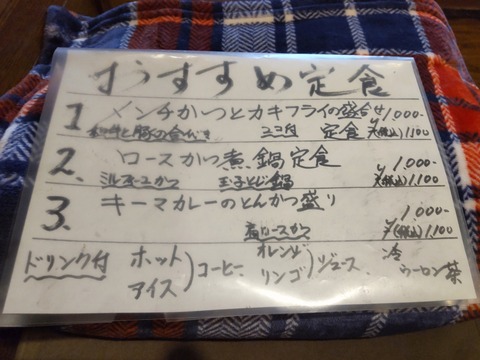 おすすめ定食
1. メンチかつとカキフライの盛合せ ¥1,000-
和牛と豚の合びき 2コ付 定食 ¥(税込)1,100
2. ロースかつ煮鍋定食 ¥1,000-
ミルフィーユかつ 玉子とじ鍋 ¥(税込)1,100
3. キーマカレーのとんかつ盛り 1,000-
ロースかつ ¥(税込)1,100
ドリンク付 ホット アイス)コーヒー オレンジ リンゴ)ジュース 冷 ウーロン茶